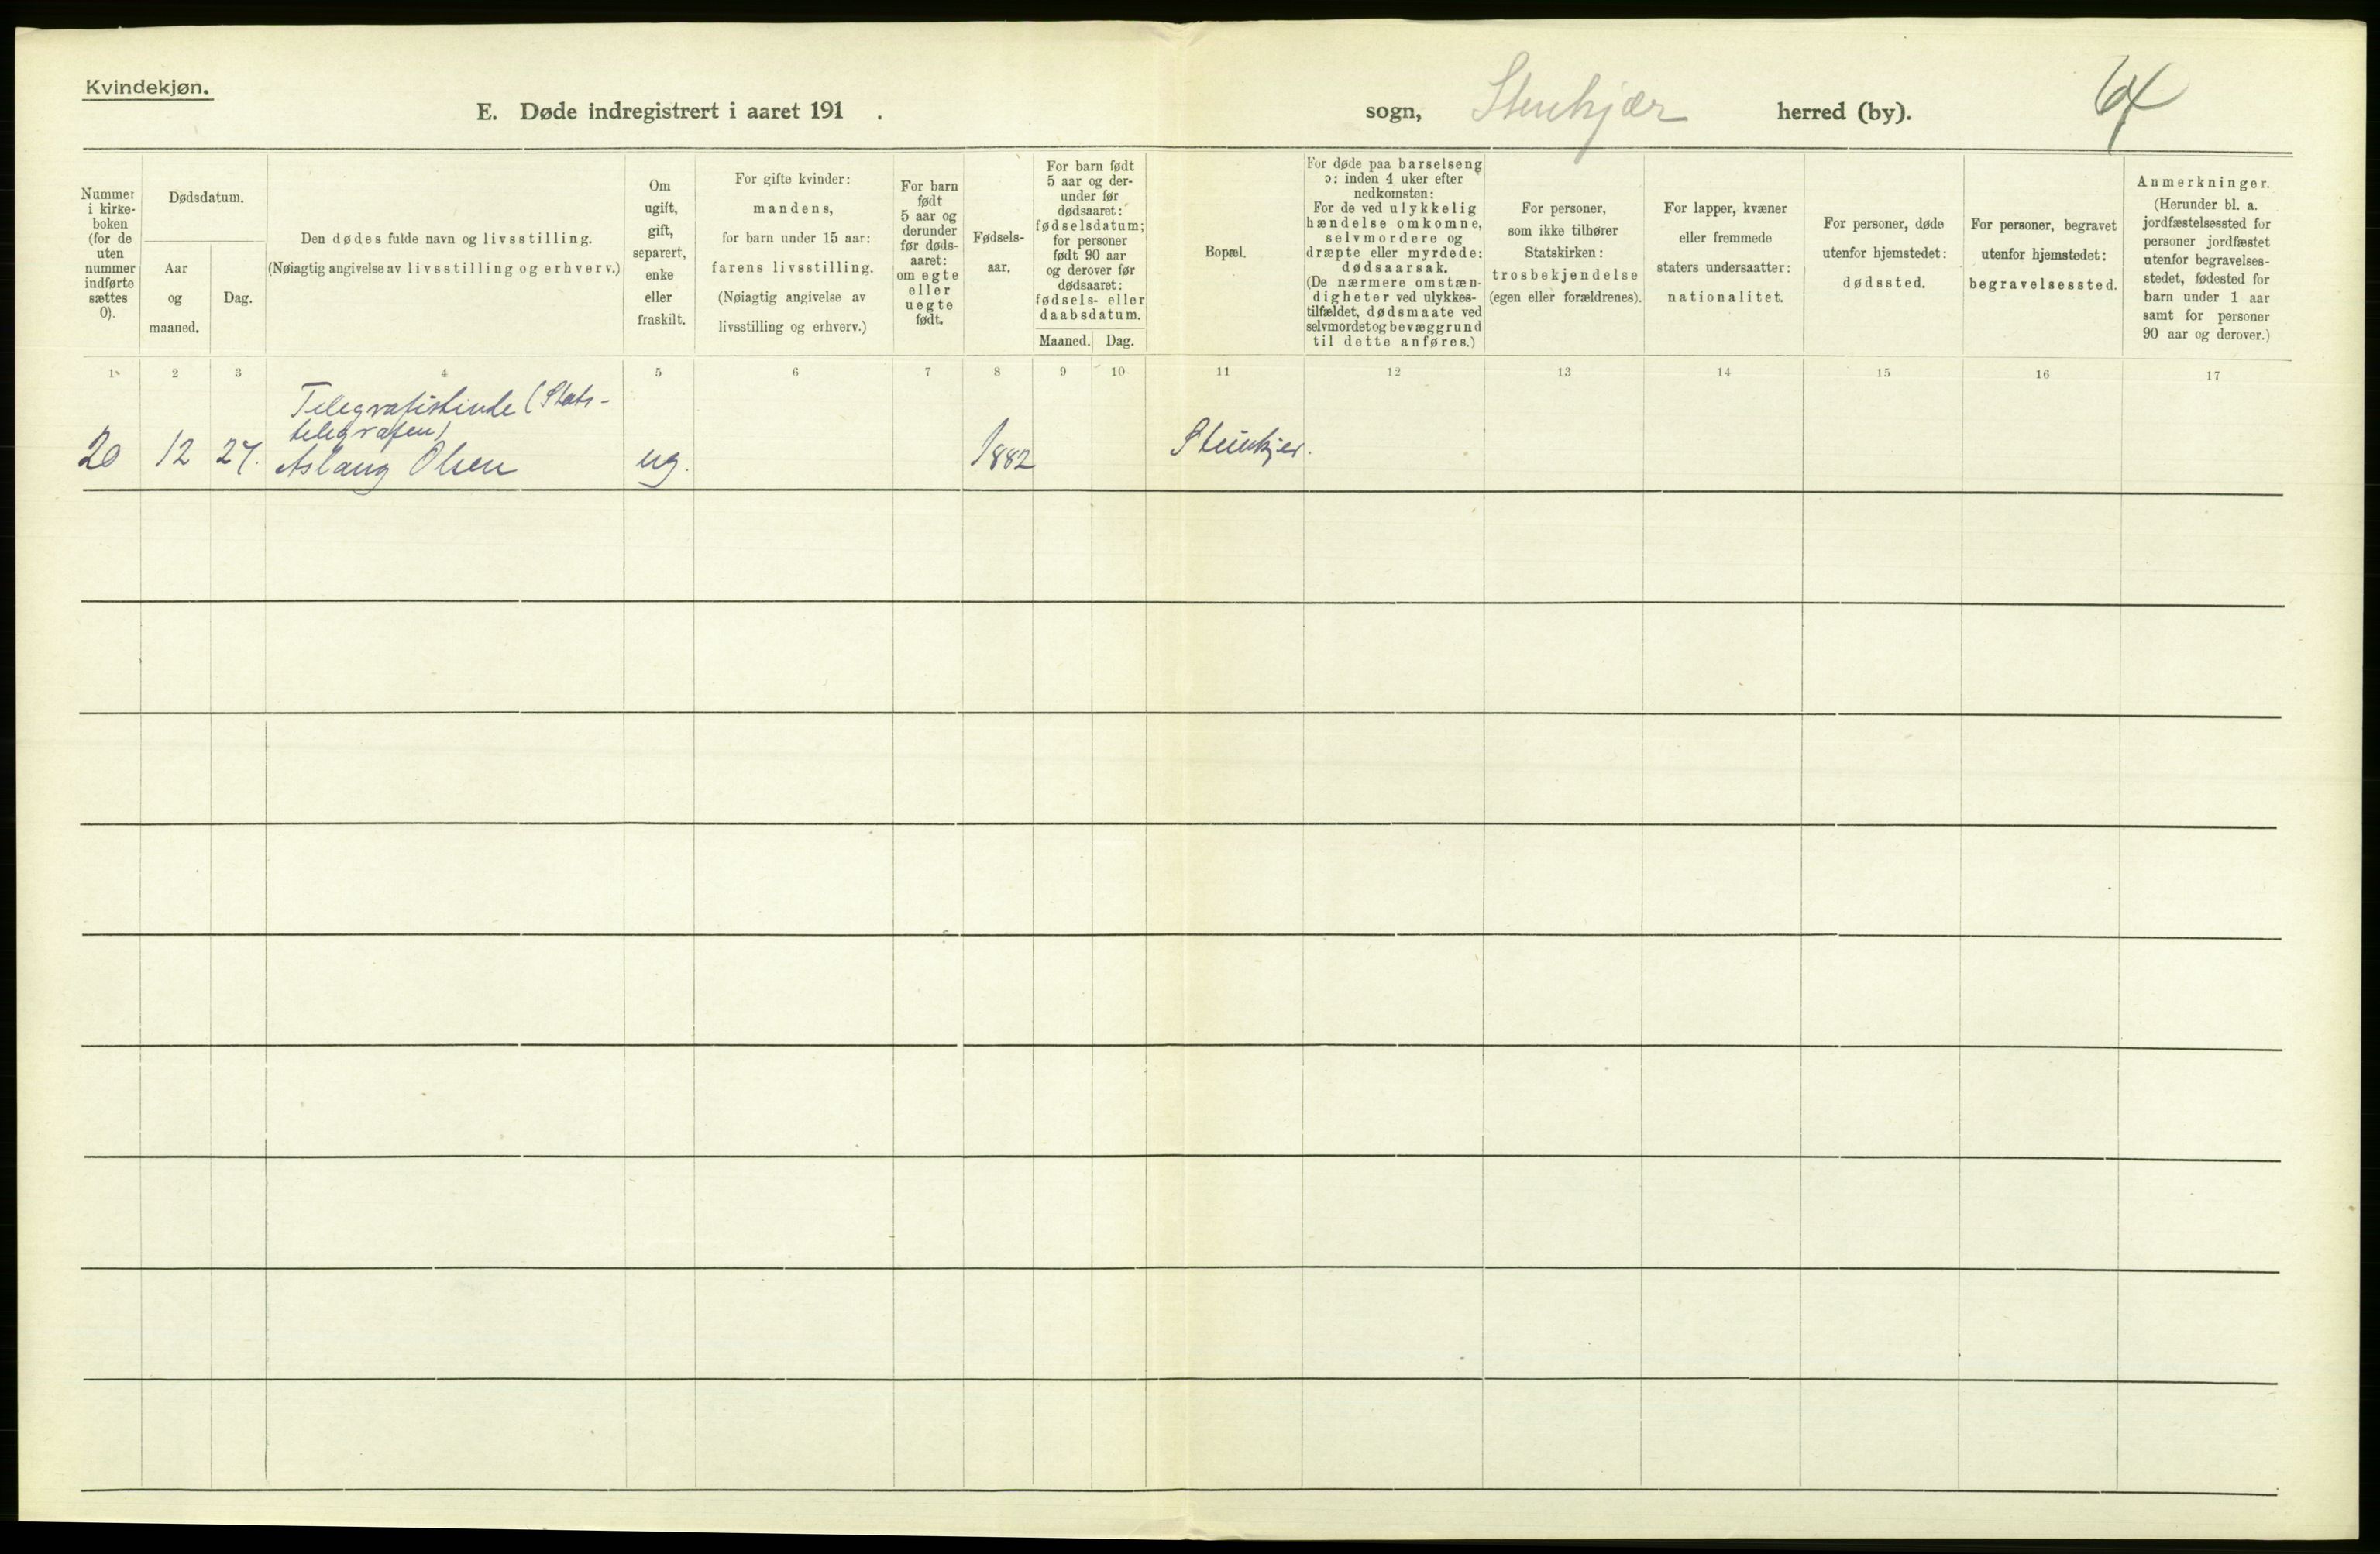 Kvindekjøn.
E. Døde indregistrert i aaret 191 . sogn, Stenkjær herred (by). 64
Nummer i kirkeboken (for de uten nummer indførte sættes 0).
Dødsdatum.
Aar og maaned.
Dag.
Den dødes fulde navn og livsstilling.
(Nøiagtig angivelse av livsstilling og erhverv.)
Om ugift, gift, separert, enke eller fraskilt.
For gifte kvinder:
mandens,
for barn under 15 aar:
farens livsstilling.
(Nøiagtig angivelse av
livsstilling og erhverv.)
For barn født 5 aar og derunder før dødsaaret: om egte eller uegte født.
Fødselsaar.
For barn født
5 aar og der-
under før
dødsaaret:
fødselsdatum;
for personer
født 90 aar
og derover før
dødsaaret:
fødsels- eller
daabsdatum.
Maaned. Dag.
Bopæl.
For døde paa barselseng
ɔ: inden 4 uker efter
nedkomsten:
For de ved ulykkelig
hændelse omkomne,
selvmordere og
dræpte eller myrdede:
dødsaarsak.
(De nærmere omstæn-
digheter ved ulykkes-
tilfældet, dødsmaate ved
selvmordet og bevæggrund
til dette anføres.)
For personer,
som ikke tilhører
Statskirken:
trosbekjendelse
(egen eller forældrenes).
For lapper, kvæner
eller fremmede
staters undersaatter:
nationalitet.
For personer, døde
utenfor hjemstedet:
dødssted.
For personer, begravet
utenfor hjemstedet:
begravelsessted.
Anmerkninger.
(Herunder bl. a.
jordfæstelsessted for
personer jordfæstet
utenfor begravelses-
stedet, fødested for
barn under 1 aar
samt for personer
90 aar og derover.)
1 2 3 4 5 6 7 8 9 10 11 12 13 14 15 16 17
Telegrafistinde (Stats-
telegrafen)
20 12 27. Aslaug Olsen ug. 1882 Steinkjer.